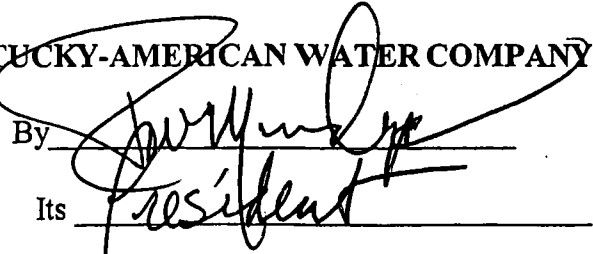 TUCKY-AMERICAN WATER COMPANY
By
Its President